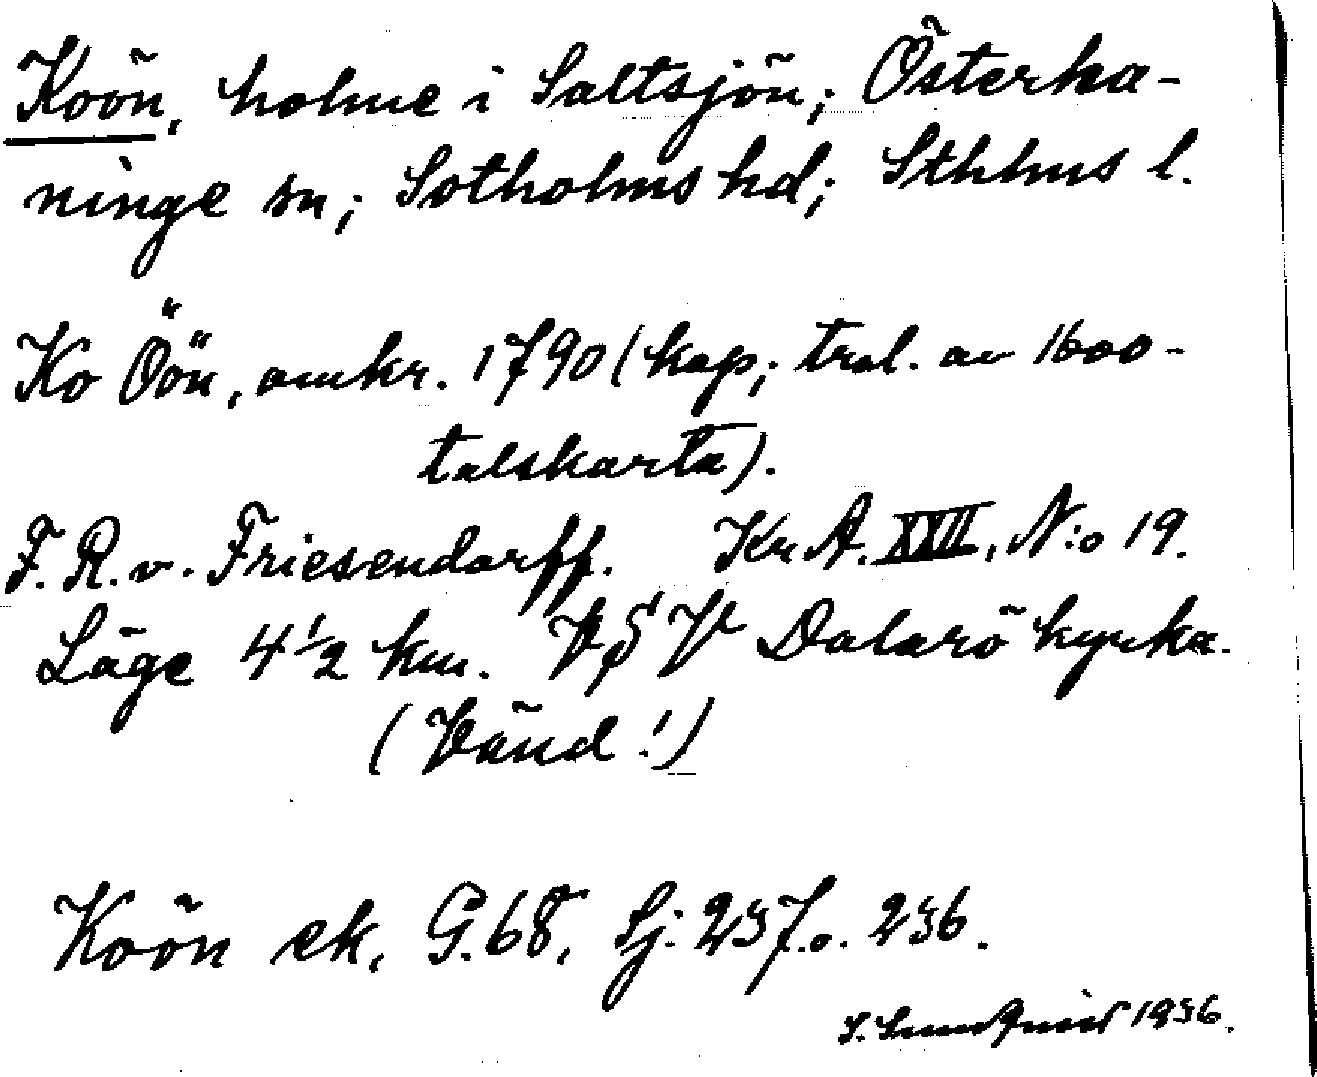 Koön, holme i Saltsjön; Österha-
ninge sn; Sotholms hd; Sthlms l.
Ko Öön, omkr. 1790 (kop; trol. av 1600-
talskarta).
F. R. v. Friesendorff. Kr. A. XXII, N:o 19.
Läge 4 1/2 km. VSV Dalarö kyrka.
(Vänd!)
Koön ek. G. 68, Sj. 237. o. 236.
S. 1936.